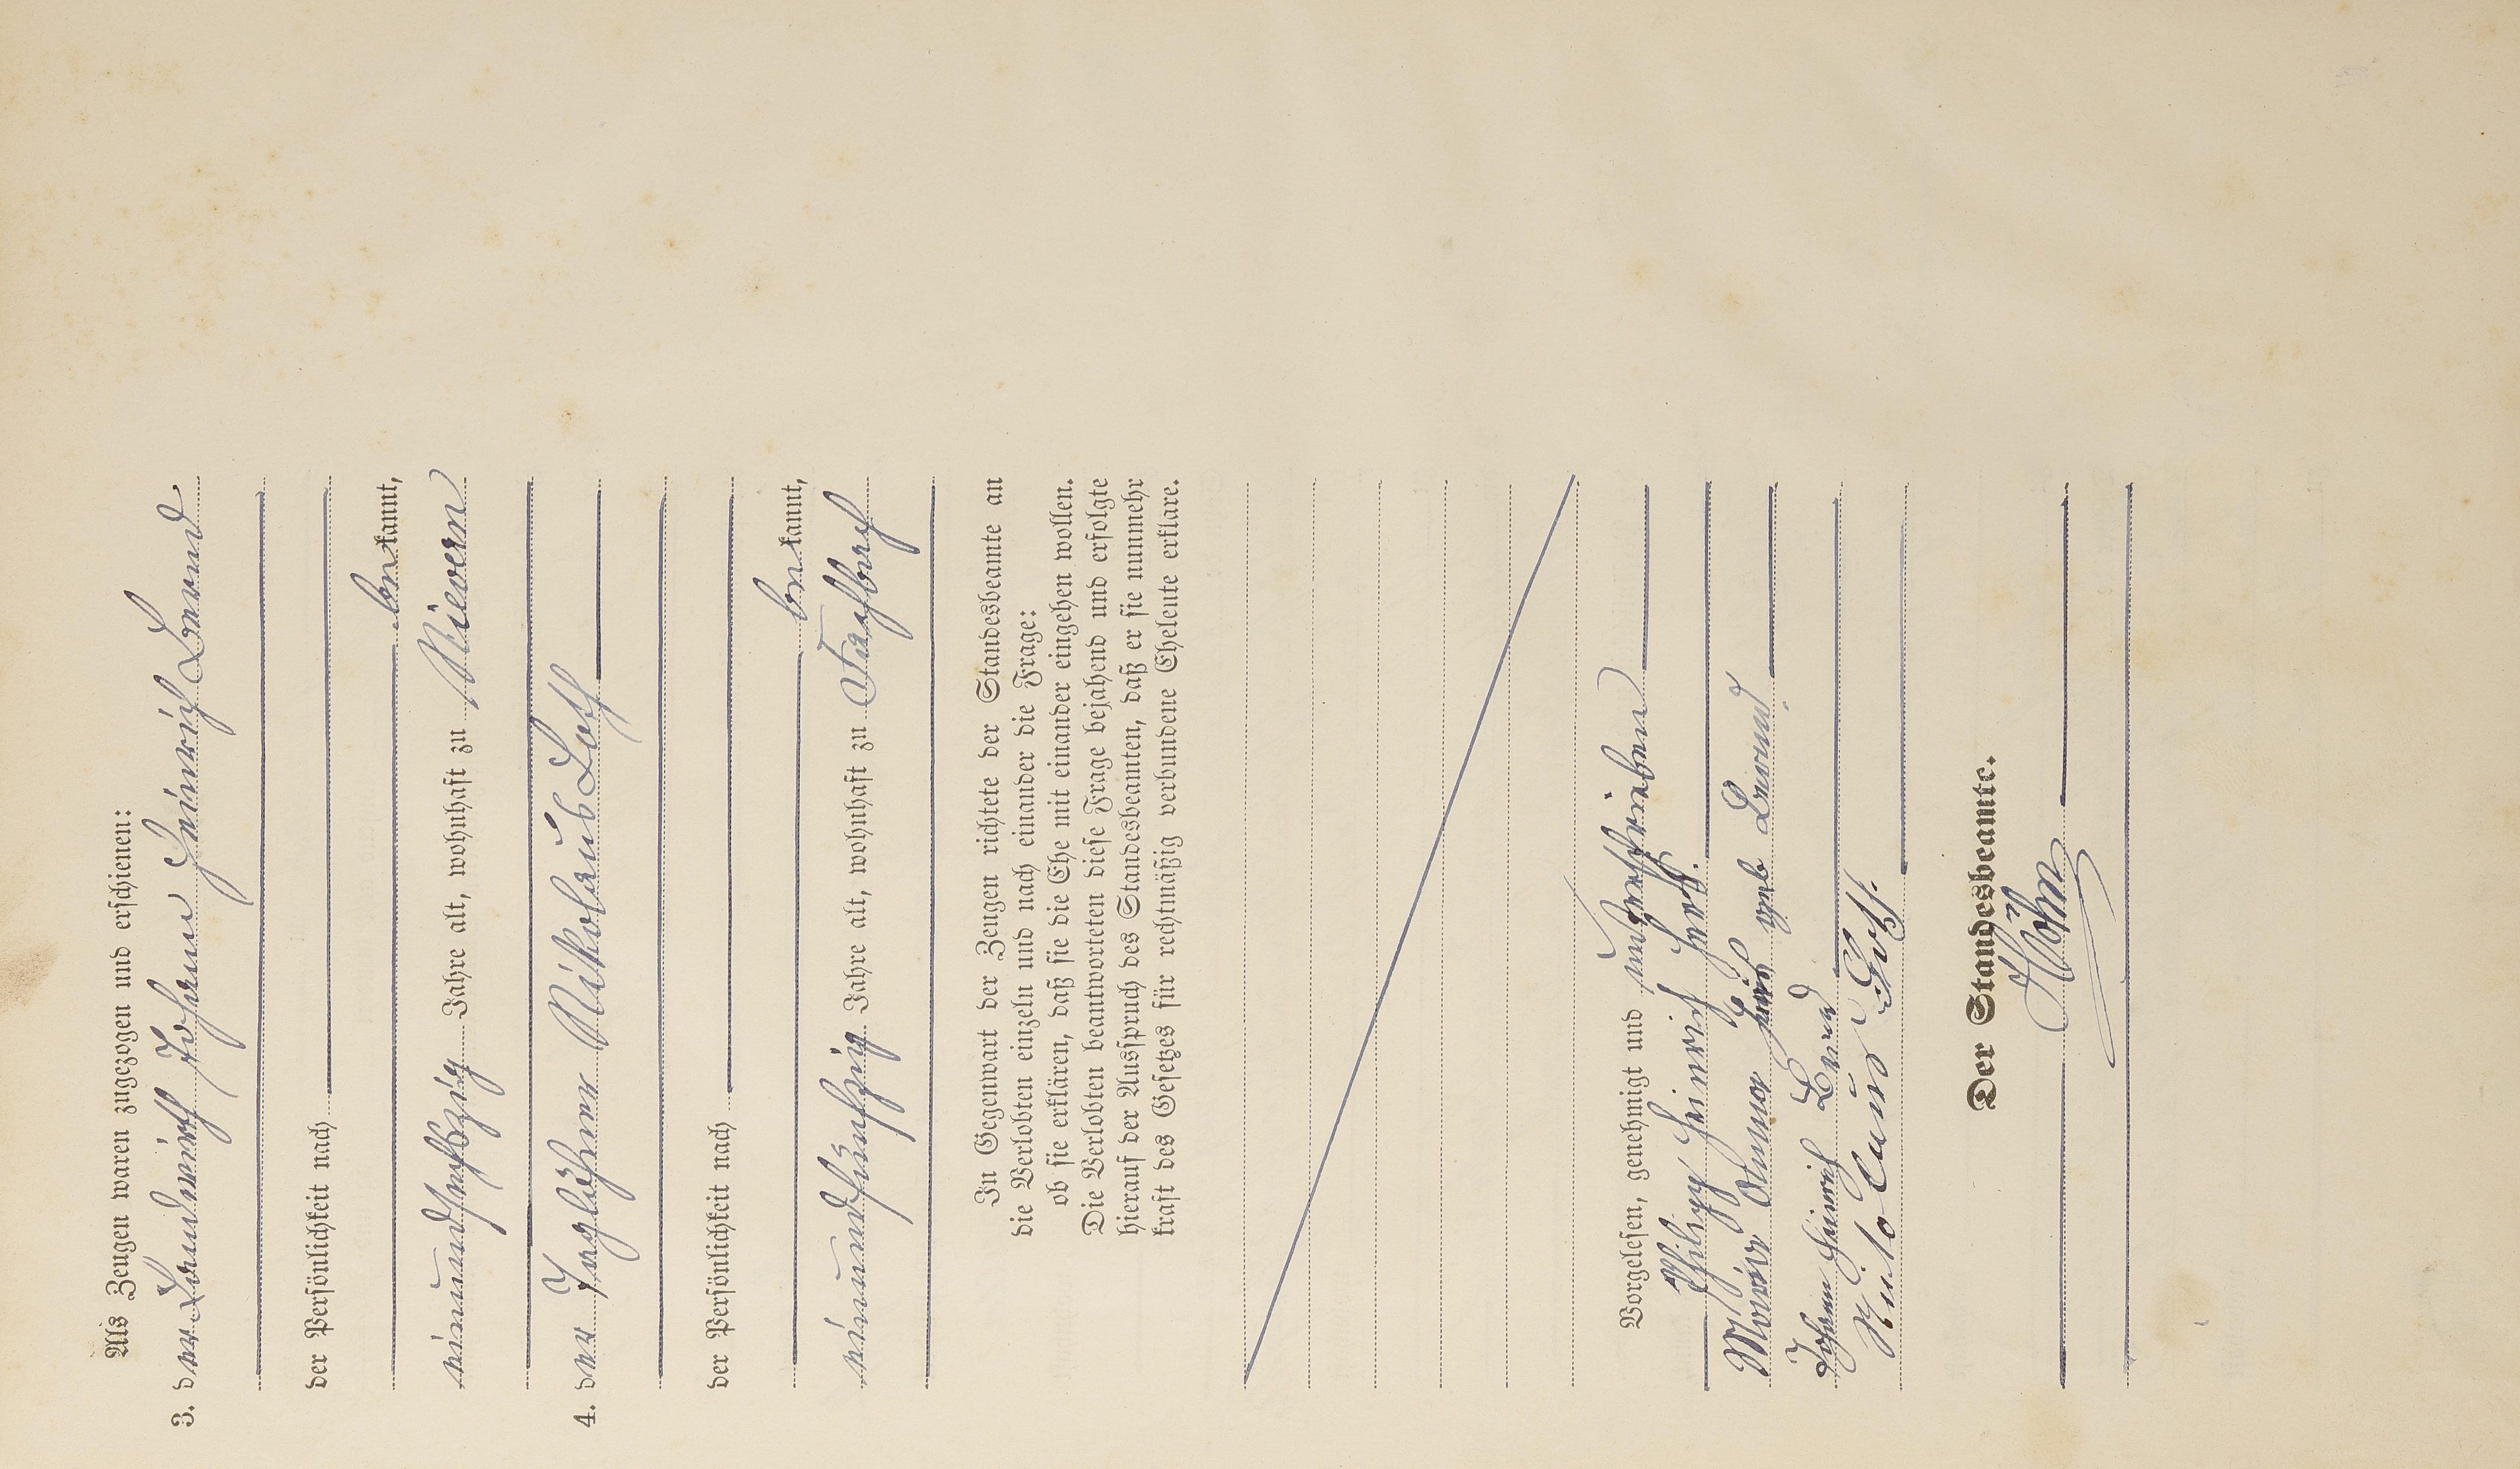 Als Zeugen waren zugezogen und erschienen:
3. der Landwirth Johann Heinrich Lorend
der Persönlichkeit nach
bekannt,
neunundsechszig Jahre alt, wohnhaft zu Nievern
4. der Taglöhner Nikolaus Loth
der Persönlichkeit nach
bekannt,
neunundfünfzig Jahre alt, wohnhaft zu Fachbach
In Gegenwart der Zeugen richtete der Standesbeamte an
die Verlobten einzeln und nach einander die Frage:
ob sie erklären, daß sie die Ehe mit einander eingehen wollen.
Die Verlobten beantworteten diese Frage bejahend und erfolgte
hierauf der Ausspruch des Standesbeamten, daß er sie nunmehr
kraft des Gesetzes für rechtmäßig verbundene Eheleute erkläre.
Vorgelesen, genehmigt und unterschrieben
Philipp Heinrich
Maria Anna geb Lorend
Johann Heinrich Lorend
Loth
Der Standesbeamte.
Höhn